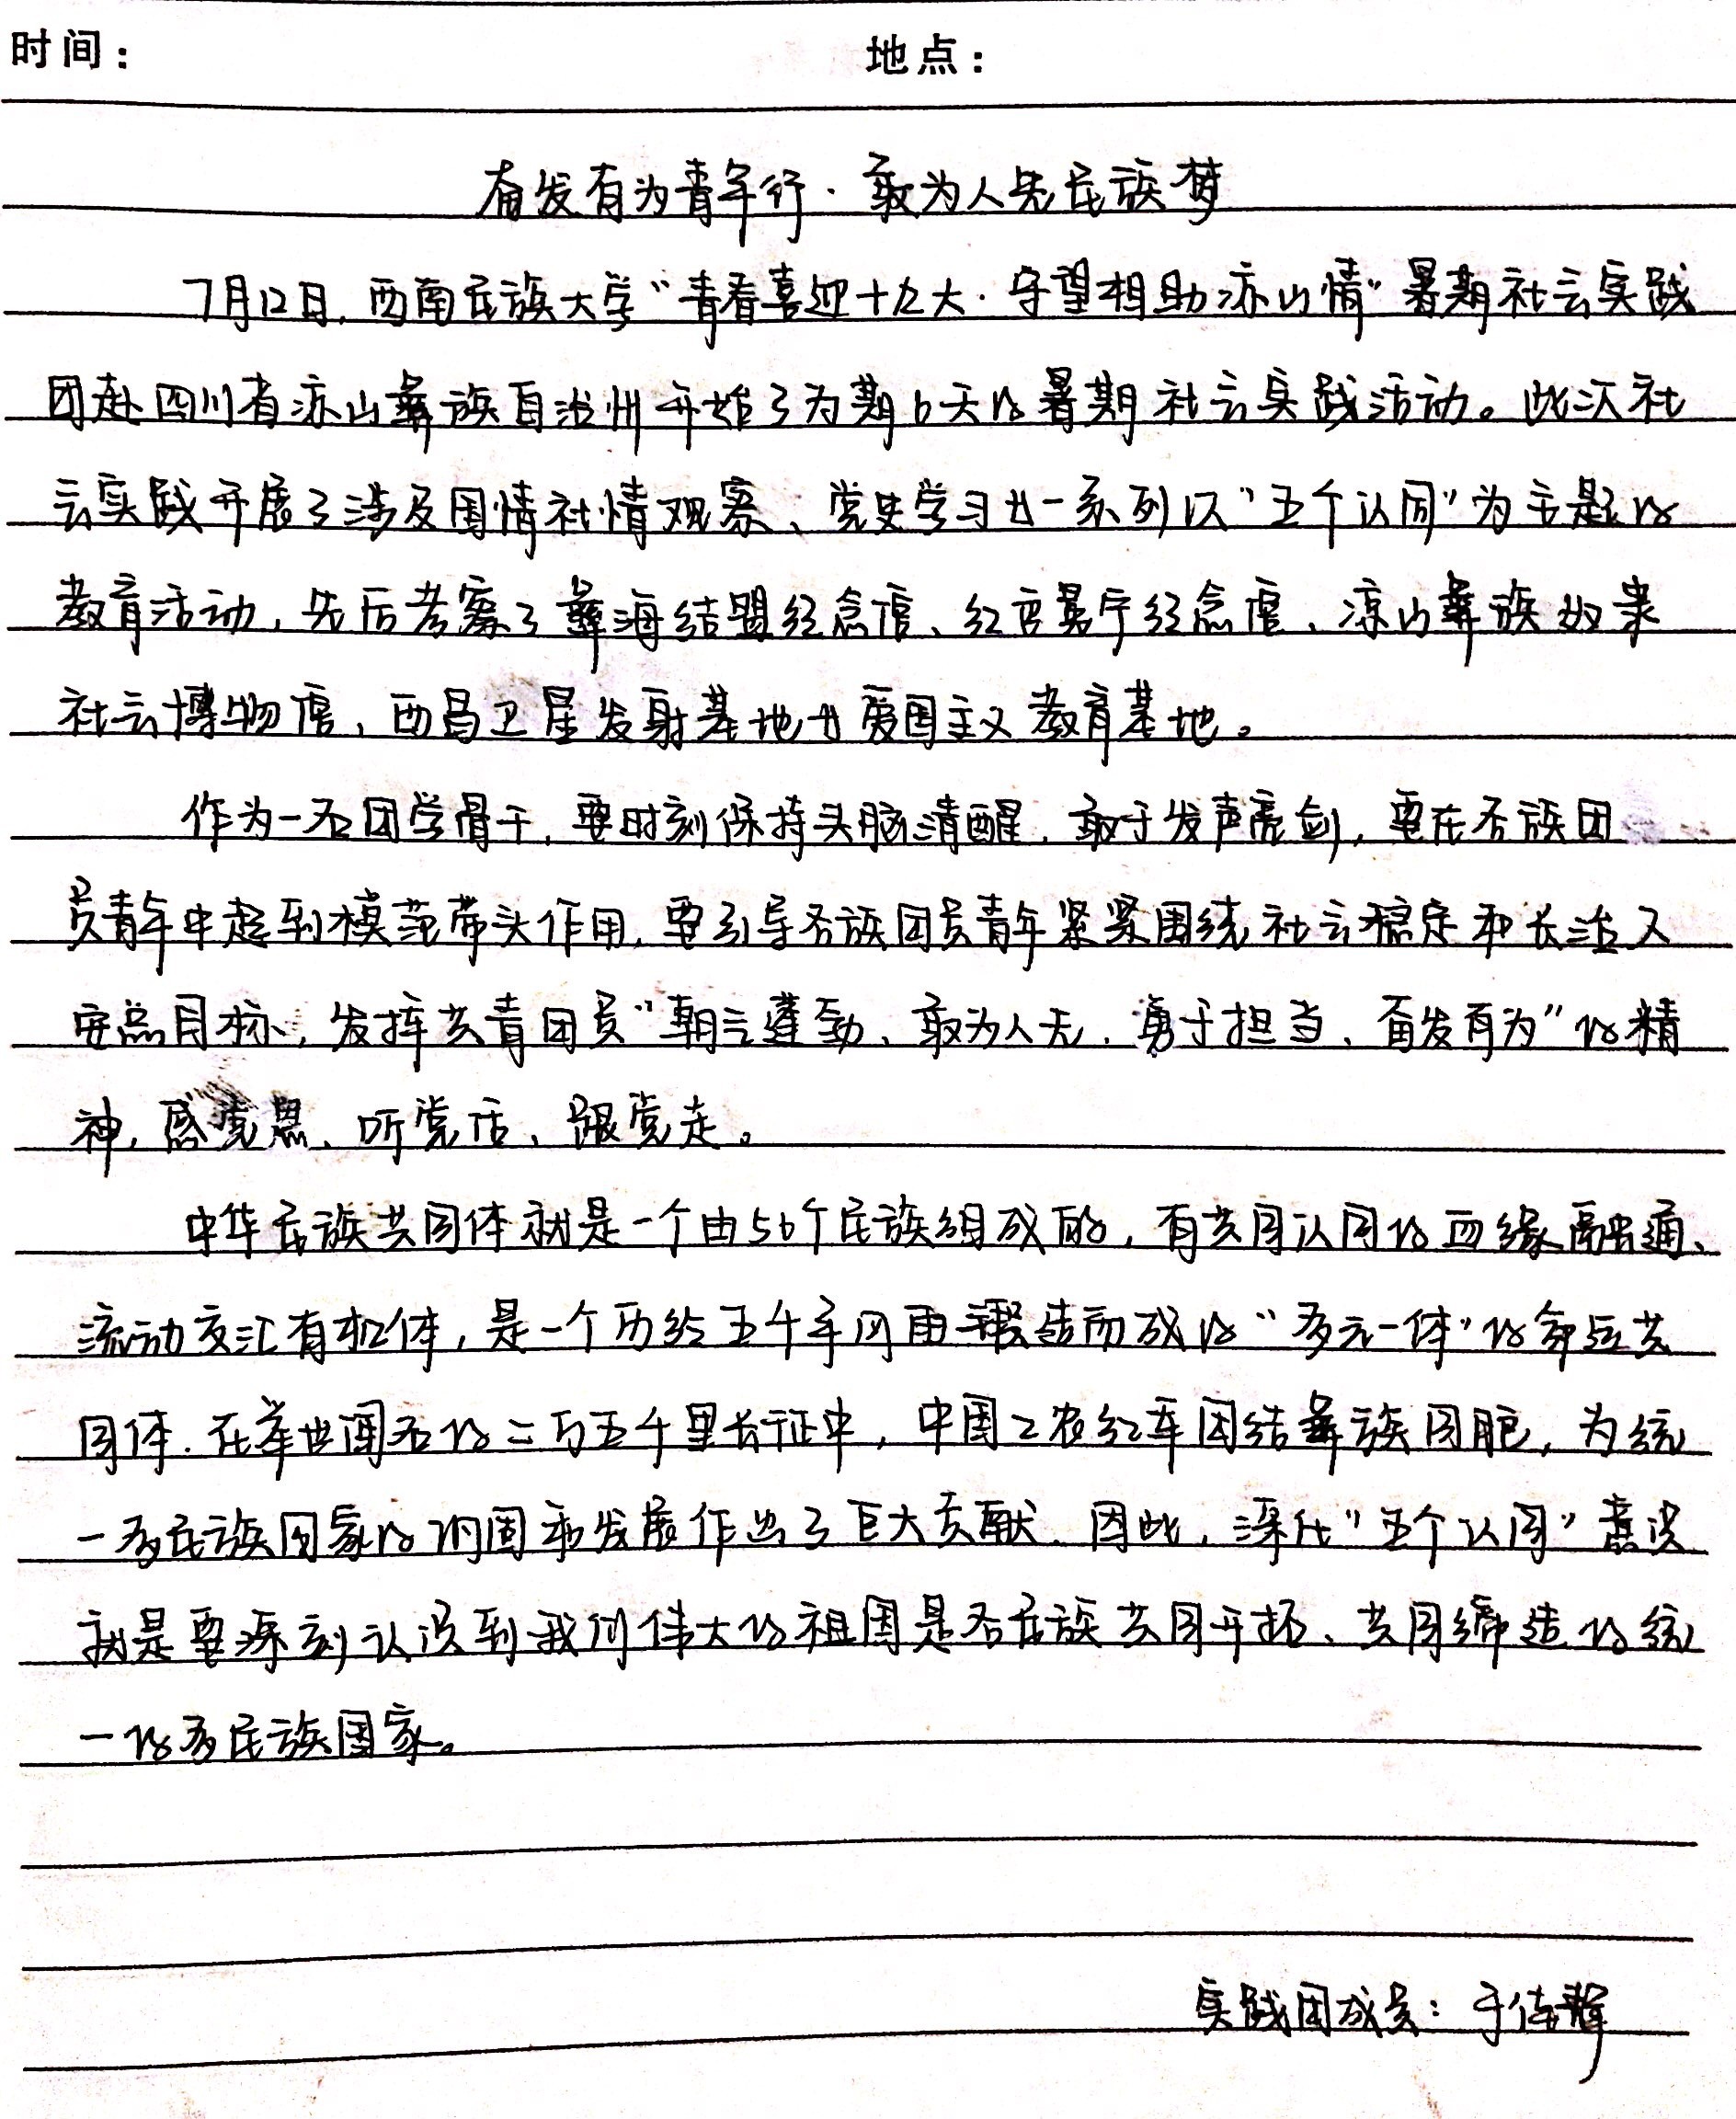 时间：　地点：
奋发有为青年行·敢为人先民族梦
7月12日，西南民族大学“青春喜迎十九大·守望相助凉山情”暑期社会实践
团赴四川省凉山彝族自治州开始了为期6天的暑期社会实践活动。此次社
会实践开展了涉及国情社情观察、党史学习等一系列以“五个认同”为主题的
教育活动，先后考察了彝海结盟纪念馆、红军长征纪念馆、凉山彝族奴隶
社会博物馆，西昌卫星发射基地等爱国主义教育基地。
作为一名团学骨干，要时刻保持头脑清醒，敢于发声亮剑，要在各族团
员青年中起到模范带头作用，要引导各族团员青年紧紧围绕社会稳定和长治久
安总目标，发挥共青团员“朝气蓬勃、敢为人先、勇于担当、奋发有为”的精
神，感党恩、听党话、跟党走。
中华民族共同体就是一个由56个民族组成的，有共同认同的血缘融通、
流动交汇有机体，是一个历经五千年风雨锻造而成的“多元一体”的命运共
同体．在举世闻名的二万五千里长征中，中国工农红军团结彝族同胞，为统
一多民族国家的巩固和发展作出了巨大贡献．因此，深化“五个认同”意识
就是要深刻认识到我们伟大的祖国是各民族共同开拓、共同缔造的统
一的多民族国家。
实践团成员：于佳辉